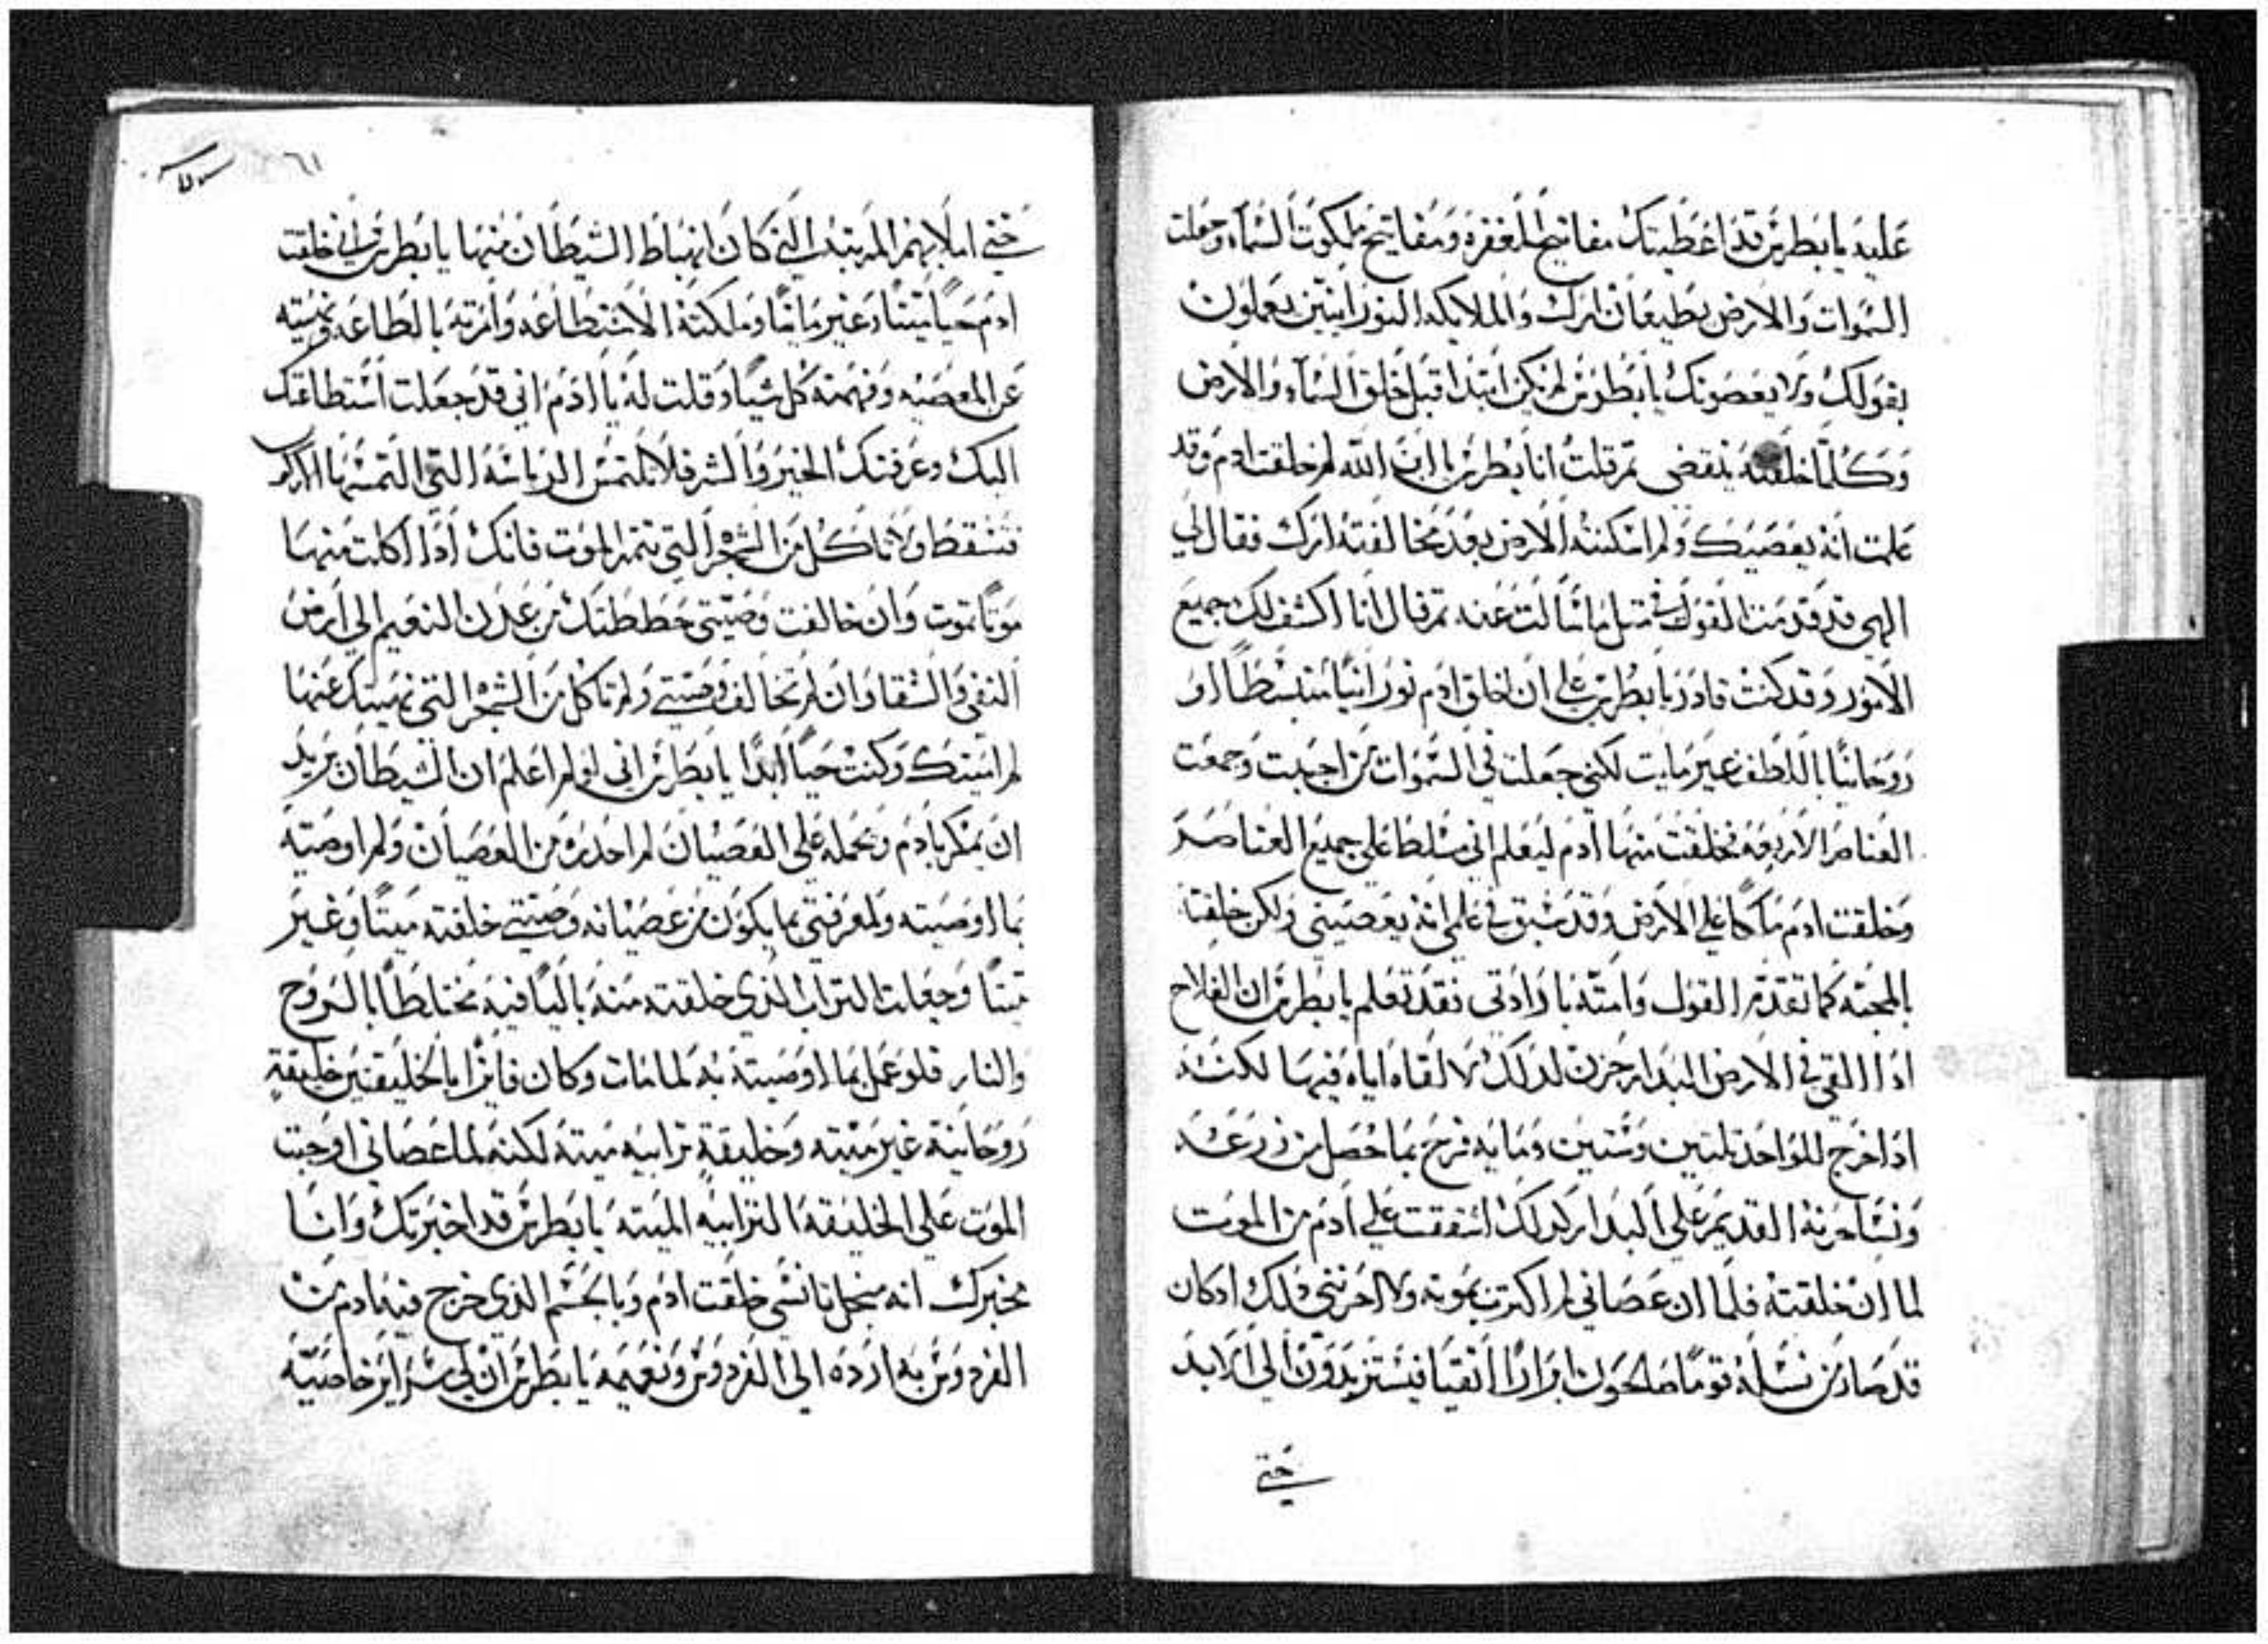 عليه يا بطرس قد اعطيتك مفاتيح المغفره ومفاتيح ملكوت السماء وجعلت
السموات والارض يطيعان امرك والملايكه النورانيين يعملون
بقولك ولا يعصونك يا بطرس لم يكن ابتدا قبل خلق السماء والارض
وكلما خلقته ينقضي ثم قلت انا بطرس يا ابن الله لم خلقت ادم وقد
علمت انه يعصيك ولم اسكنته الارض بعد مخالفته امرك فقال لي
الهي قد قدمت القول في مثل ما سالت عنه ثم قال انا اكشف لك جميع
الامور وقد كنت قادر يا بطرس على ان اخلق ادم نورانيا منبسطا او
روحانيا باللطف غير مايت لكني جعلت في السموات من احببت وجمعت
العناصر الاربعه فخلقت منها ادم ليعلم اني مسلطا علي جميع العناصر
وخلقت ادم مالكا علي الارض وقد سبق في علمي انه يعصيني ولكن خلقته
بالمحبه كما تقدم القول وامته بارادتي فقد تعلم يا بطرس ان الفلاح
اذا القي في الارض البدار حزن لذلك لالقاه اياه فيها لكنه
اذا خرج للواحد ثلثين وستين ومايه فرح بما حصل من زرعه
ونسا حزنه القديم علي البدار كذلك اشفقت علي ادم من الموت
لما ان خلقته فلما ان عصاني لم اكترث بموته ولا احزنني ذلك اذ كان
قد صار من نسله قوما صالحون ابرارا اتقيا فيستزيدون الي الابد
حتي
٦١
حتي املا بهم المرتبه التي كان انهباط الشيطان منها يا بطرس اني خلقت
ادم حيا ميتا وغير مايتا وملكته الاستطاعه وامرته بالطاعه ونهيته
عن المعصيه وفهمته كل شيا وقلت له يا ادم اني قد جعلت استطاعتك
اليك وعرفتك الخير والشر فلا تلتمس الرياسه التي التمسها
فتسقط ولا تاكل من الشجرا التي تثمر الموت فانك اذا اكلت منها
موتا تموت وان خالفت وصيتي حططتك من عدن النعيم الي ارض
النفي والشقا وان لم تخالف وصيتي ولم تاكل من الشجرا التي نهيتك عنها
لم اميتك وكنت حيا ابدا يا بطرس اني لو لم اعلم ان الشيطان يريد
ان يمكر بادم ويحمله علي العصيان لم احذره من العصيان ولم اوصيه
بما اوصيته ولمعرفتي بما يكون من عصيانه وصيتي خلقته ميتا وغير
ميتا وجعلت التراب الذي خلقته منه باليا فيه مختلطا بالروح
والنار فلو عمل بما اوصيته به لما مات وكان فايزا بالخليقتين خليقة
روحانية غير ميته وخليقة ترابيه ميته لكنه لما عصاني اوجبت
الموت علي الخليقه الترابيه الميته يا بطرس قد اخبرتك وانا
مخبرك انه من اجل ما نشي خلقت ادم وبالجسم الذي خرج فيه ادم من
الفردوس به ارده الي الفردوس ونعيمه يا بطرس ان لي سراير خاصيه